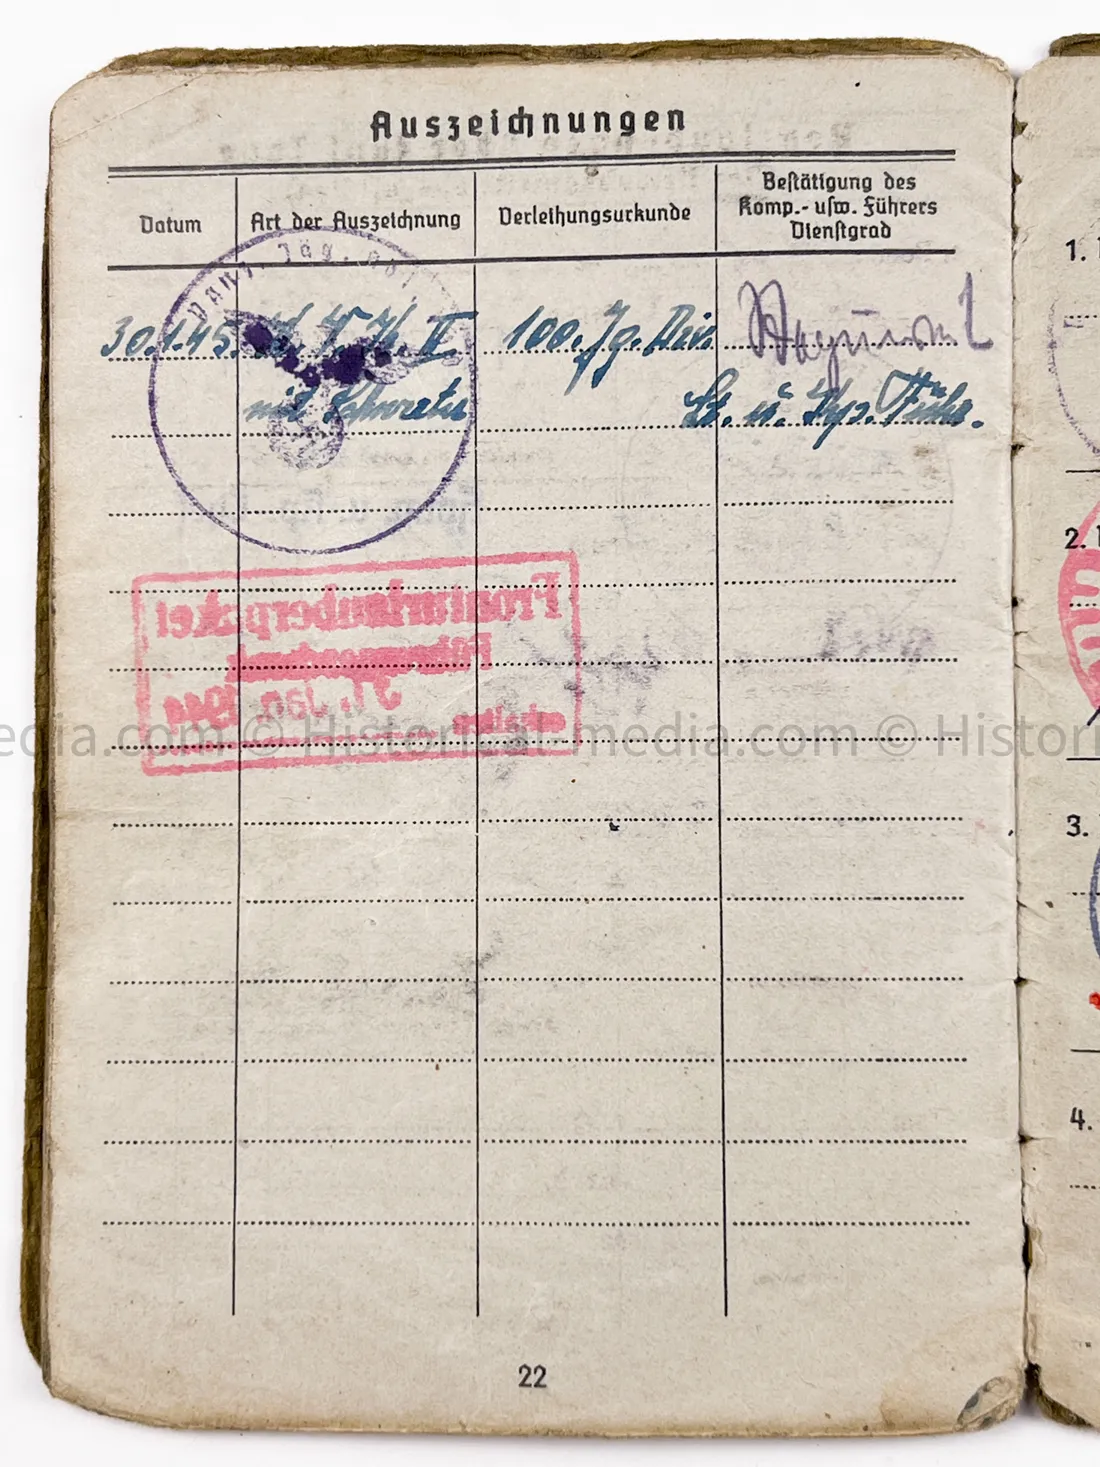 Auszeichnungen
Datum
Art der Auszeichnung
Verleihungsurkunde
Bestätigung des
Komp.- usw. Führers
Dienstgrad
Panz. Jäg. Abt
30.1.45. K. V. K. II 100. Jg. Div.
mit Schwerter Lt. u. Kp. Führ.
Fronturlauberpaket
31. Jan. 1944
erhalten
edia.com © Historical-media.com © Histori
22
1.
2.
3.
4.